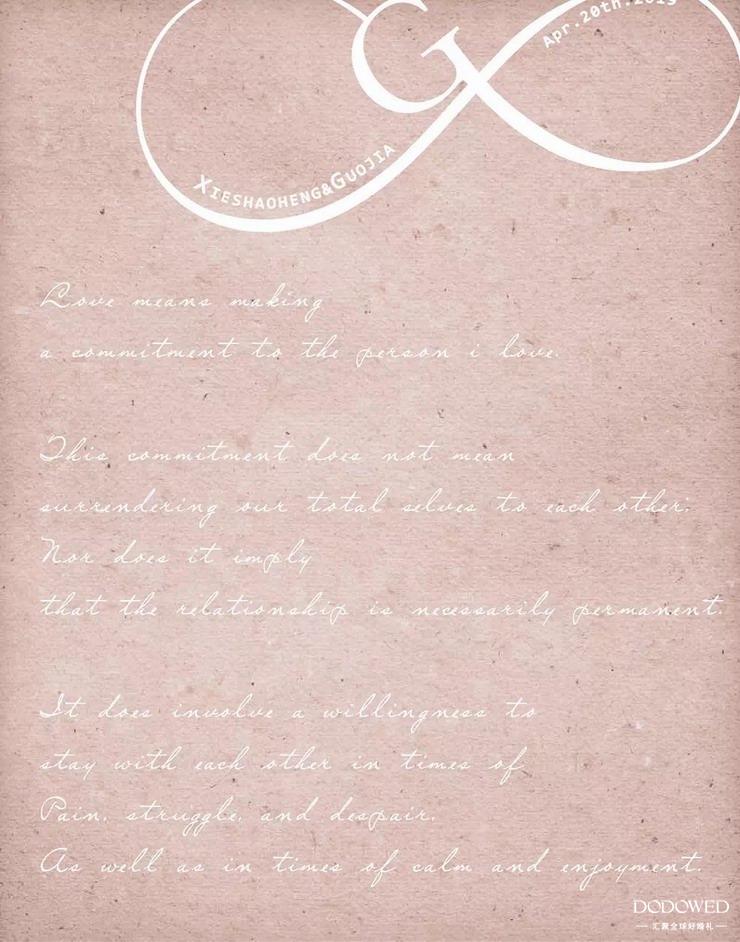 Apr.20th.2019
G
XIESHAOHENG&GUOJIA
Love means making
a commitment to the person i love.
This commitment does not mean
surrendering our total selves to each other;
Nor does it imply
that the relationship is necessarily permanent.
It does involve a willingness to
stay with each other in times of
Pain, struggle, and despair.
As well as in times of calm and enjoyment.
DODOWED
汇聚全球好婚礼